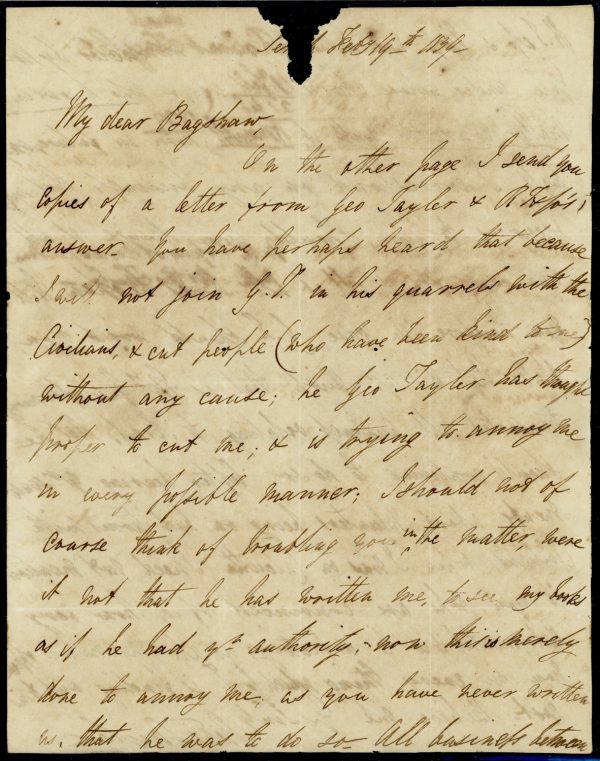 Feby 19th 1839
My dear Bagshaw,
On the other page I send you
copies of a letter from Geo Tayler &
answer. You have perhaps heard that because
I will not join G.T. in his quarrels with the
Civilians, & cut people (who have been kind to me)
without any cause; he Geo Tayler has thought
proper to cut me; & is trying to annoy me
in every possible manner; I should not of
course think of troubling you in the matter, were
it not that he has written me, to see my books
as if he had yr authority; - now this is merely
done to annoy me, as you have never written
us. that he was to do so - All business between